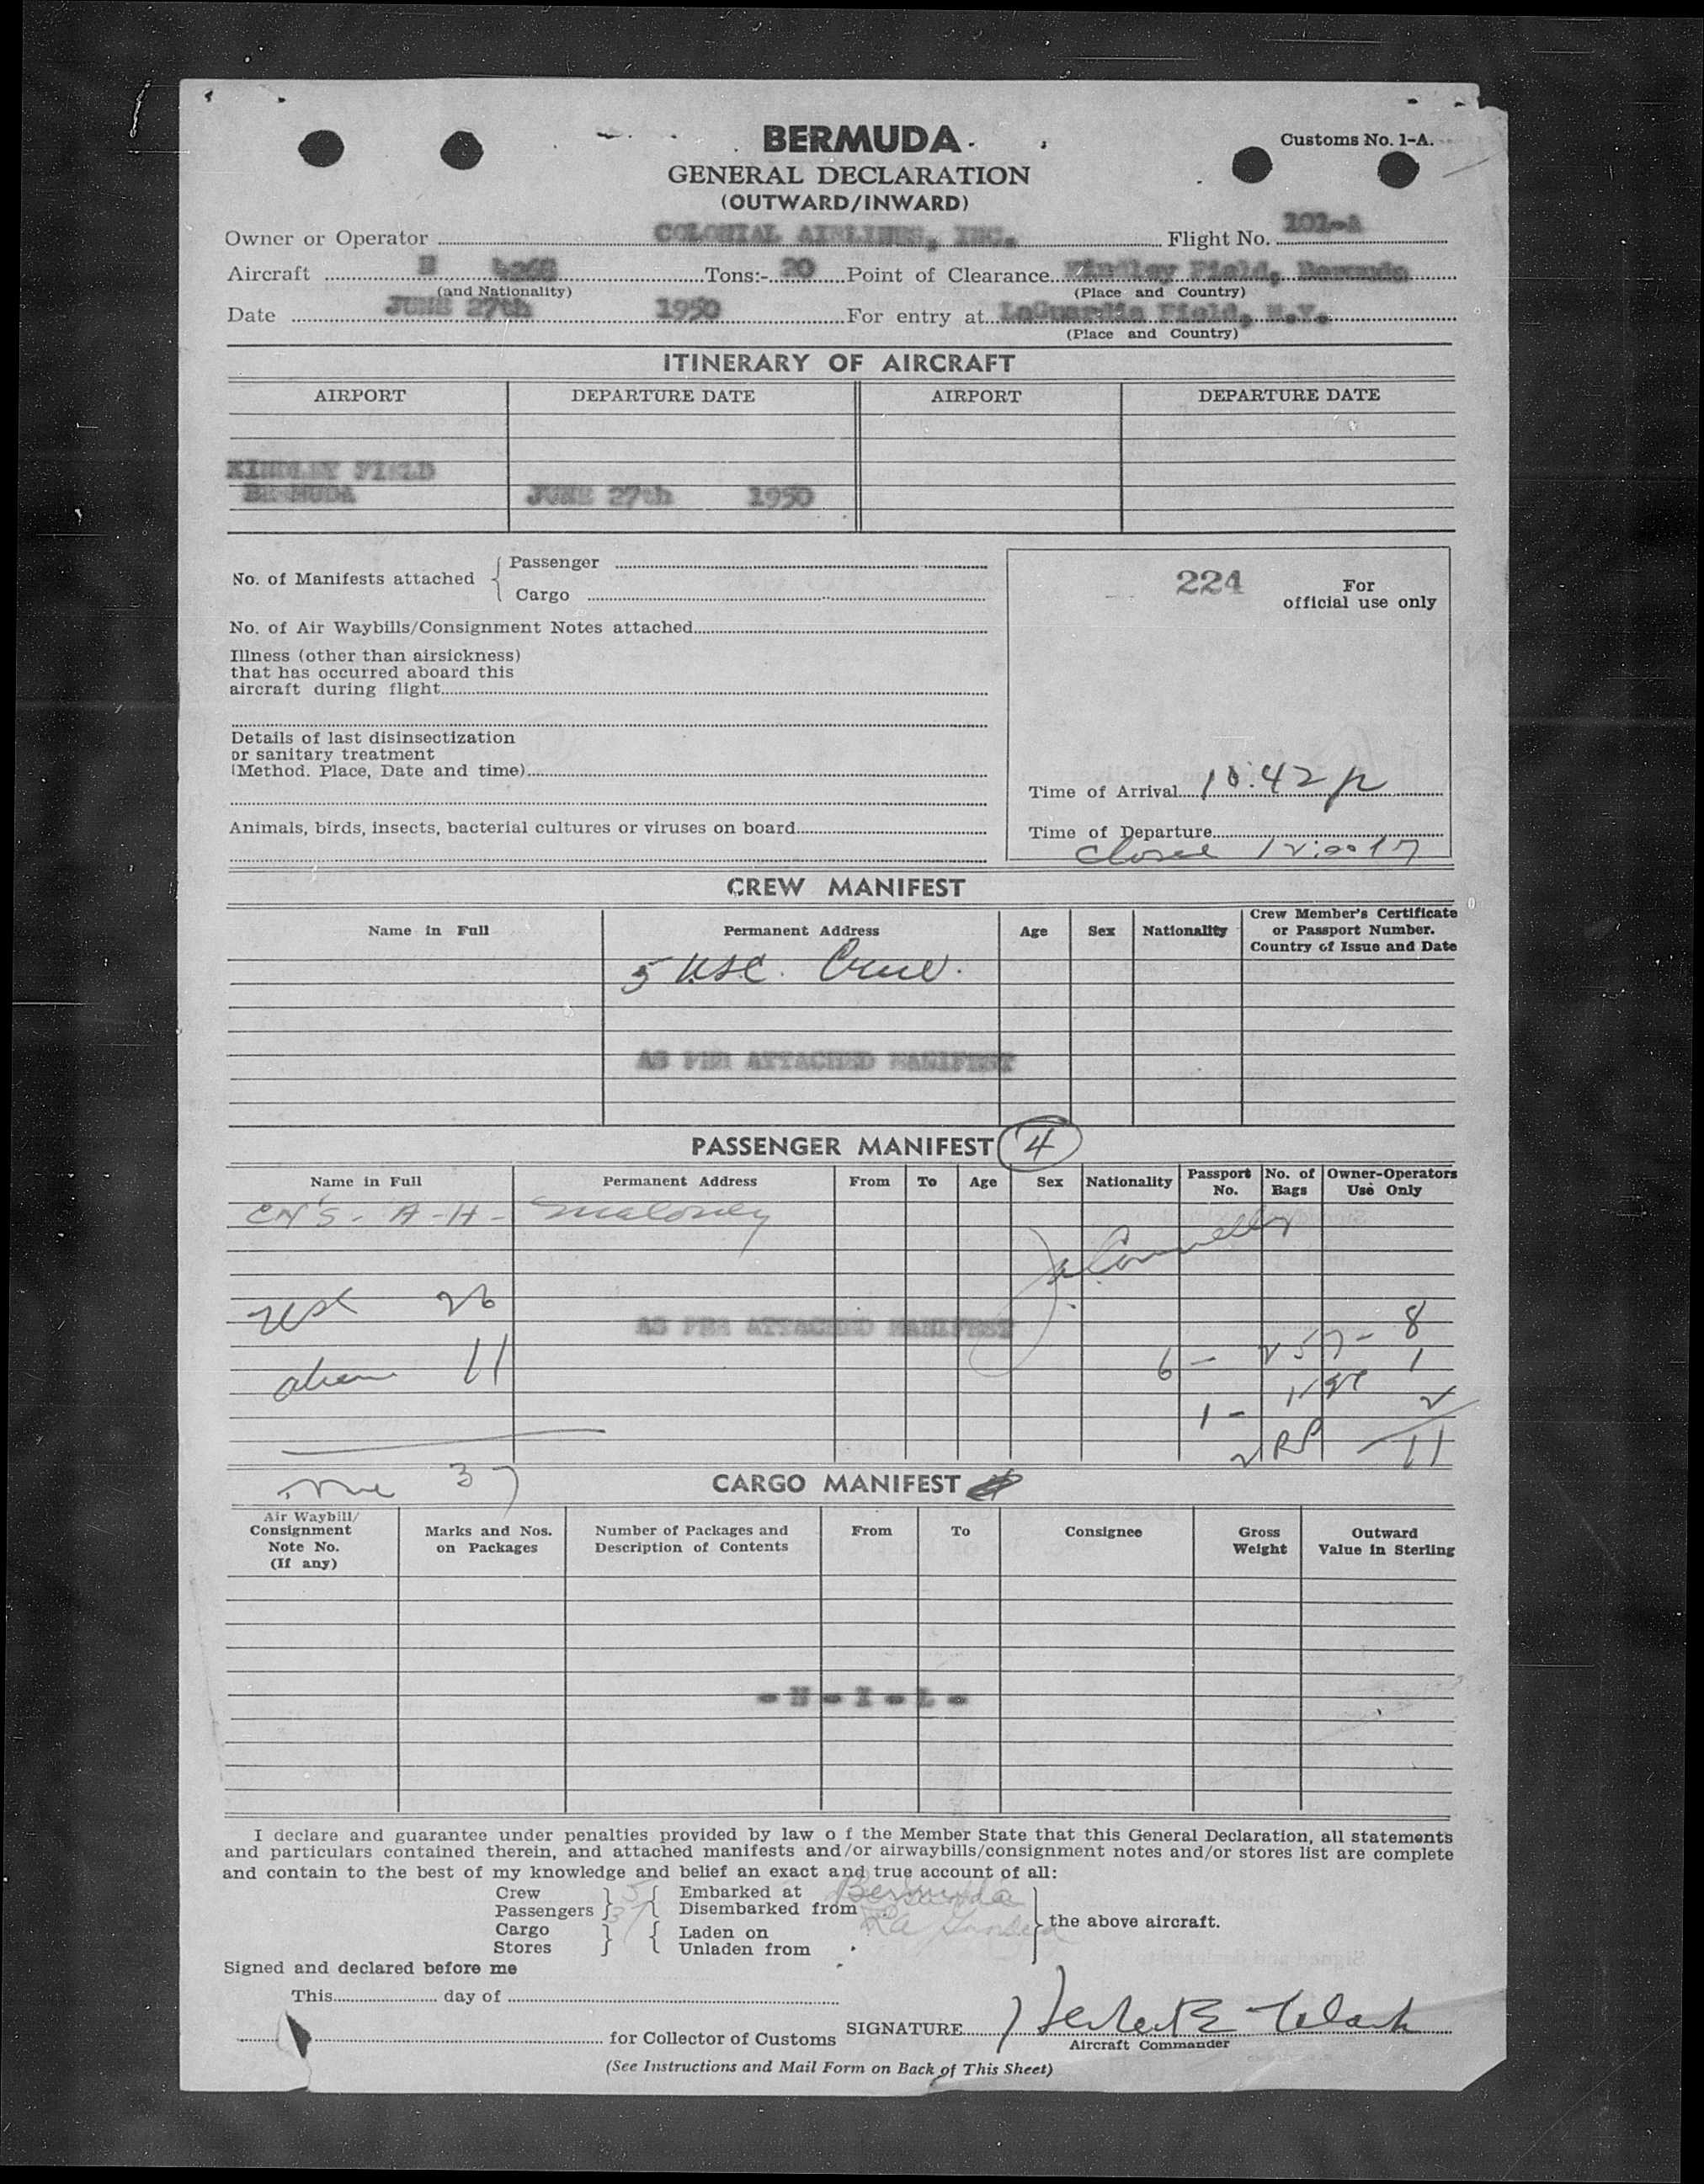 BERMUDA
Customs No. 1-A.
GENERAL DECLARATION
(OUTWARD/INWARD)
Owner or Operator COLONIAL AIRLINES, INC. Flight No. 101-A
Aircraft N Tons:- 20 Point of Clearance Kindley Field, Bermuda
(and Nationality) (Place and Country)
Date JUNE 27th 1950 For entry at LaGuardia Field, N.Y.
(Place and Country)
ITINERARY OF AIRCRAFT
AIRPORT DEPARTURE DATE AIRPORT DEPARTURE DATE
KINDLEY FIELD
BERMUDA JUNE 27th 1950
No. of Manifests attached { Passenger
Cargo
224 For
official use only
No. of Air Waybills/Consignment Notes attached
Illness (other than airsickness)
that has occurred aboard this
aircraft during flight
Details of last disinsectization
or sanitary treatment
(Method. Place, Date and time)
Time of Arrival 10:42 p
Animals, birds, insects, bacterial cultures or viruses on board
Time of Departure
CREW MANIFEST
Name in Full Permanent Address Age Sex Nationality Crew Member's Certificate
or Passport Number.
Country of Issue and Date
5 USC. Crew.
AS PER ATTACHED MANIFEST
PASSENGER MANIFEST 4
Name in Full Permanent Address From To Age Sex Nationality Passport No. No. of Bags Owner-Operators Use Only
A-H- Maloney
J. Connelly
USC 26
AS PER ATTACHED MANIFEST
8
11
6 - 1
1 - 2
2 RP 11
37
CARGO MANIFEST
Air Waybill/
Consignment
Note No.
(If any)
Marks and Nos.
on Packages
Number of Packages and
Description of Contents
From To Consignee Gross
Weight
Outward
Value in Sterling
- N - I - L -
I declare and guarantee under penalties provided by law o f the Member State that this General Declaration, all statements
and particulars contained therein, and attached manifests and/or airwaybills/consignment notes and/or stores list are complete
and contain to the best of my knowledge and belief an exact and true account of all:
Crew } 5 { Embarked at Bermuda
Passengers } 37 { Disembarked from La Guardia } the above aircraft.
Cargo } { Laden on
Stores } { Unladen from
Signed and declared before me
This day of
for Collector of Customs SIGNATURE
Aircraft Commander
(See Instructions and Mail Form on Back of This Sheet)